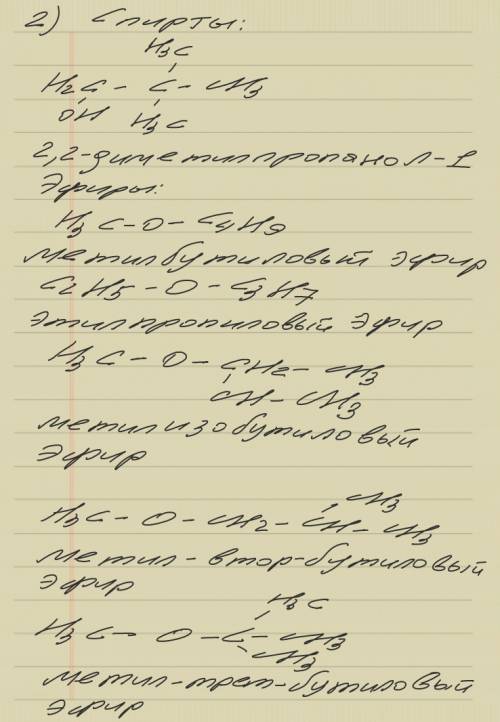 2) Спирты:
H3C
H2C - C - CH3
OH H3C
2,2-диметилпропанол-1
Эфиры:
H3C-O-C4H9
метилбутиловый эфир
C2H5-O-C3H7
этилпропиловый эфир
H3C-O-CH2-CH3
CH-CH3
метилизобутиловый
эфир
CH3
H3C-O-CH2-CH-CH3
метил-втор-бутиловый
эфир
H3C
H3C-O-C-CH3
CH3
метил-трет-бутиловый
эфир